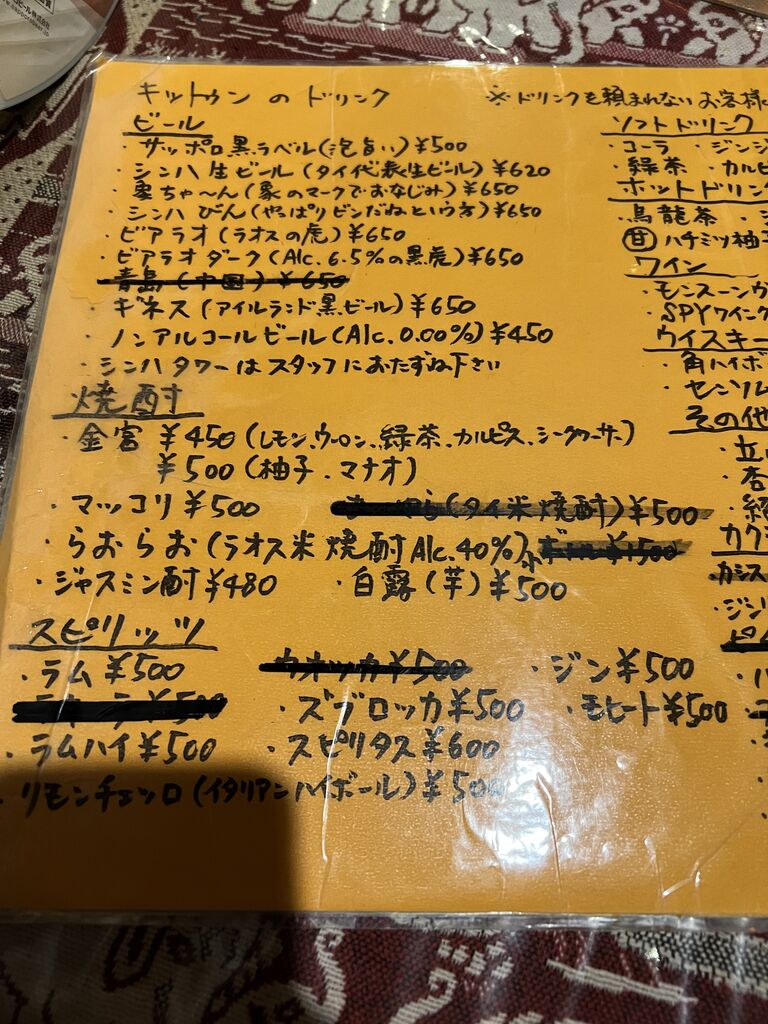 キットゥン の ドリンク
※ ドリンクを頼まれない お客様
ビール
・サッポロ黒ラベル(泡旨い)¥500
・シンハ生ビール(タイ代表生ビール)¥620
・象ちゃ〜ん(象のマークでおなじみ)¥650
・シンハ びん(やっぱりビンだねという方)¥650
・ビアラオ(ラオスの虎)¥650
・ビアラオダーク(Alc.6.5%の黒虎)¥650
青島(中国)¥650
・ギネス(アイルランド黒ビール)¥650
・ノンアルコールビール(Alc.0.00%)¥450
・シンハタワーはスタッフにおたずね下さい
焼酎
・金宮 ¥450(レモン、ウーロン、緑茶、カルピス、シークワーサー)
¥500(柚子・マナオ)
・マッコリ¥500
(タイ米焼酎)¥500
・らおらお(ラオス米焼酎Alc.40%)
¥1500
・ジャスミン酎¥480 ・白露(芋)¥500
スピリッツ
・ラム¥500 ウオッカ¥500 ・ジン¥500
¥500 ・ズブロッカ¥500 ・モヒート¥500
・ラムハイ¥500 ・スピリタス¥600
・リモンチェッロ(イタリアンハイボール)¥500
ソフトドリンク
・コーラ ・ジンジ
・緑茶 ・カルピ
ホットドリン
・烏龍茶
甘 ハチミツ柚子
ワイン
・モンスーンヴ
・SPYワインク
ウイスキー
・角ハイボ
・センソム
その他
・杏
カク
カシス
・ジン